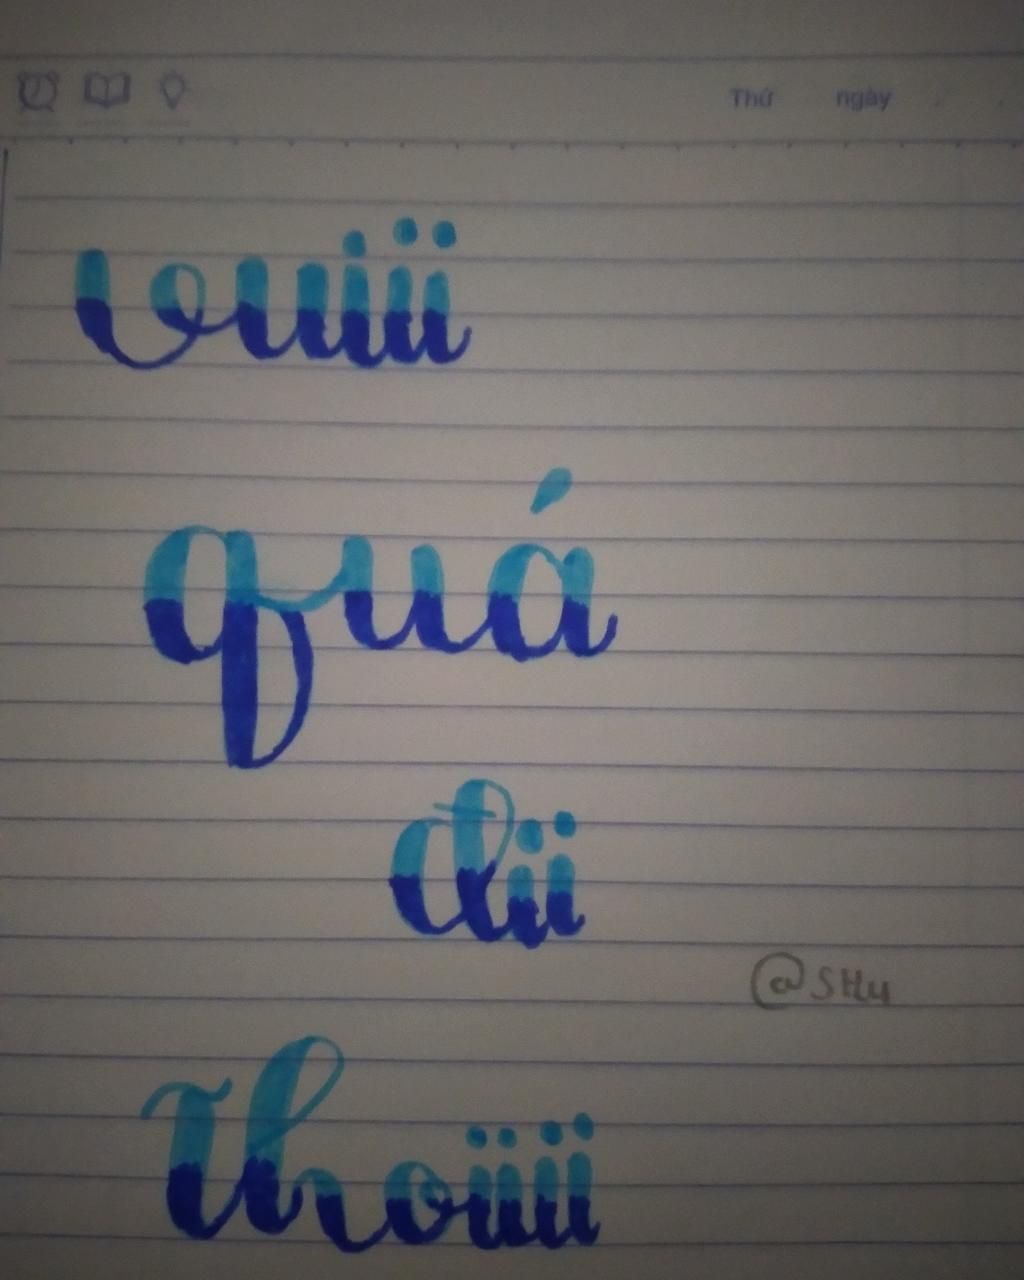 Thứ ngày
vuiii
quá
đii
@SHu
Thoiiii